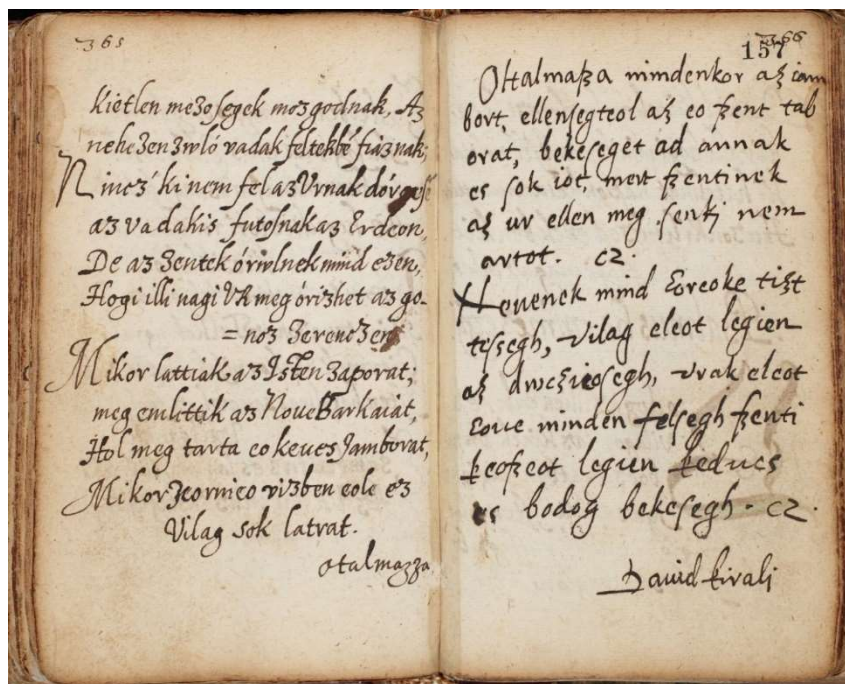 365
kietlen mezosegek mozgodnak, Az
nehezen zwló vadak feltekbē fiaznak;
Nincz ki nem fel az Vrnak dórgese
az vadakis futosnak az Erdeon,
De az zentek óriwlnek mind ezen,
Hogi illi nagi VR meg órizhet az go-
=noz zerenczen
Mikor lattiak az Isten zaporat;
meg emlittik az Noue Barkaiat,
Hol meg tarta eo keues Jamborat,
Mikor zeornieo vizben eole ez
Vilag sok latrat.
otalmazza
366
157
Oltalmaßa mindenkor aź iam
bort, ellensegteol aź eo ßent tab
orat, bekeseget ad annak
es sok iot, mert ßentinek
aź ur ellen meg senkj nem
artot. cz.
Neuenek mind eoreoke tißt
tessegh, vilag eleot legien
aź dwcźieosegh, vrak eleot
eoue minden felsegh ßenti
keoßeot legien kedues
es bodog bekesegh. cz.
Dauid kirali